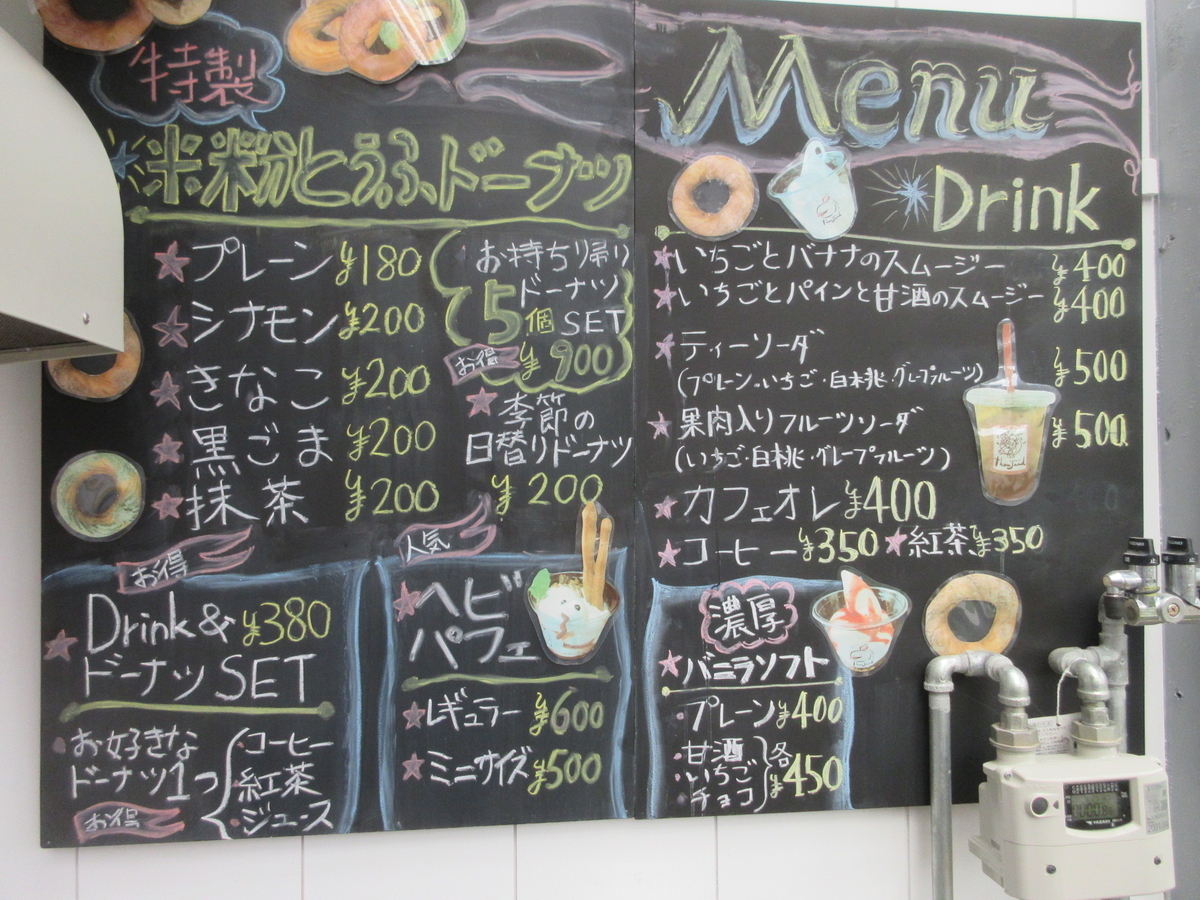 特製
米粉とうふドーナツ
プレーン ¥180
シナモン ¥200
きなこ ¥200
黒ごま ¥200
抹茶 ¥200
お持ち帰り
ドーナツ
5個 SET
お得 ¥900
季節の
日替りドーナツ
¥200
お得
Drink & ¥380
ドーナツ SET
お好きな
ドーナツ1つ
・コーヒー
・紅茶
・ジュース
お得
人気
ヘビ
パフェ
レギュラー ¥600
ミニサイズ ¥500
Menu
Drink
いちごとバナナのスムージー ¥400
いちごとパインと甘酒のスムージー ¥400
ティーソーダ ¥500
(プレーン・いちご・白桃・グレープフルーツ)
果肉入りフルーツソーダ ¥500
(いちご・白桃・グレープフルーツ)
カフェオレ ¥400
コーヒー ¥350 紅茶 ¥350
濃厚
バニラソフト
・プレーン ¥400
・甘酒
・いちご
・チョコ
各
¥450